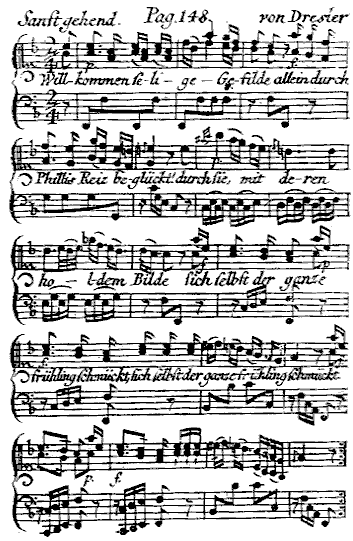 Sanft gehend. Pag. 148. von Dresler
Will-kommen se-li-ge-Gefilde allein durch
p. f.
Phillis Reiz be-glückt! durch sie, mit de-ren
p.
ho-l-dem Bilde sich selbst der ganze
f. p.
frühling schmückt, sich selbst der ganze frühling schmückt.
p. f.